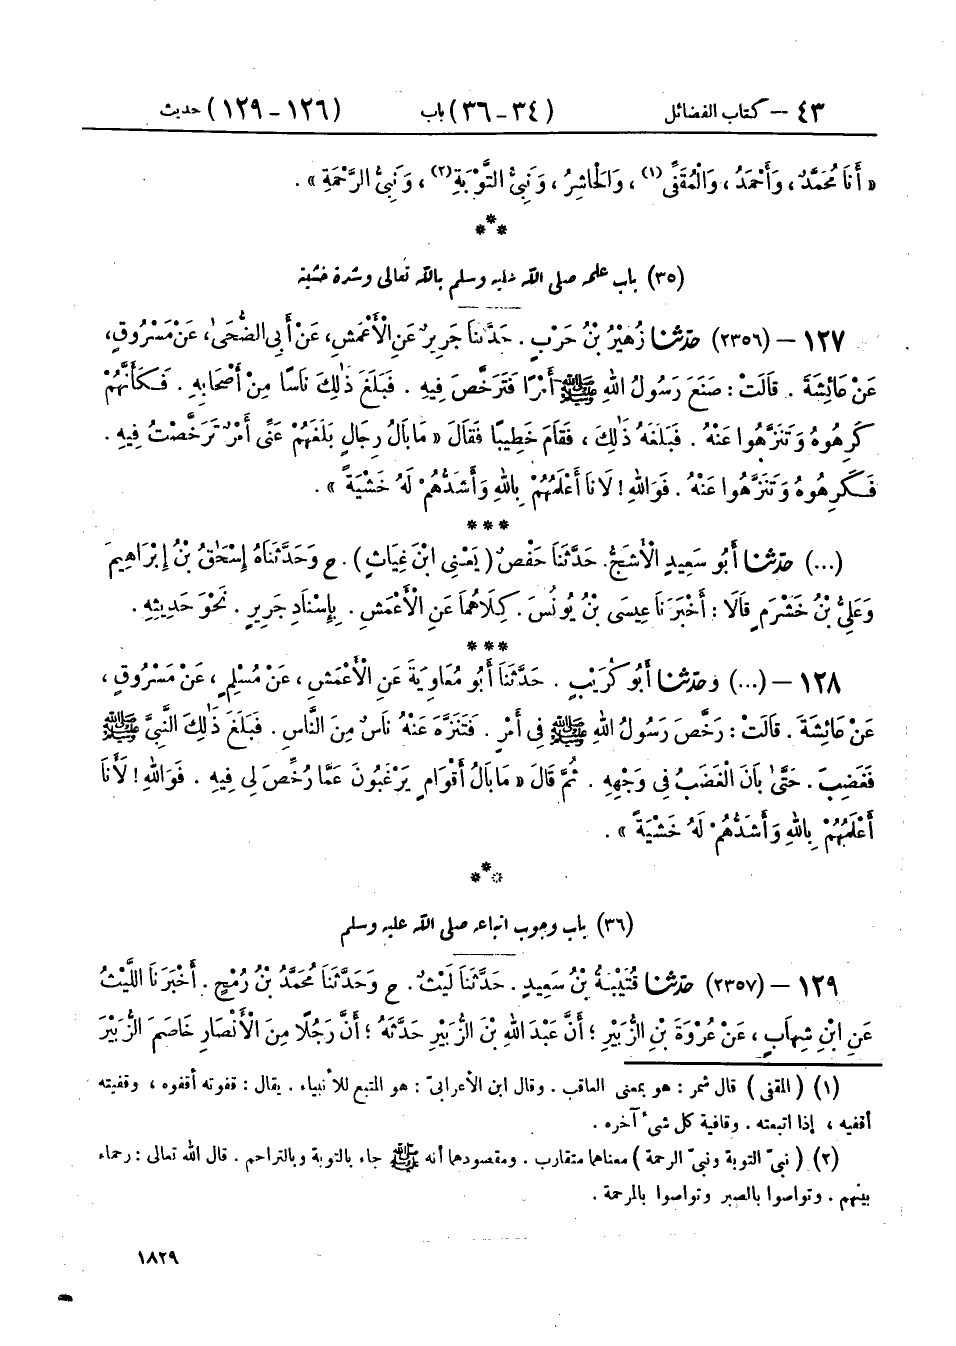 ٤٣ – كتاب الفضائل (٣٤ – ٣٦) باب (١٢٦ – ١٢٩) حديث
« أَنَا مُحَمَّدٌ ، وَأَحْمَدُ ، وَالْمُقَفِّى(١) ، وَالْحَاشِرُ ، وَنَبِيُّ التَّوْبَةِ(٢) ، وَنَبِيُّ الرَّحْمَةِ » .
***
(٣٥) باب علمه صلى الله عليه وسلم بالله تعالى وشدة خشيته
١٢٧ – (٢٣٥٦) حَدَّثَنَا زُهَيْرُ بْنُ حَرْبٍ . حَدَّثَنَا جَرِيرٌ عَنِ الْأَعْمَشِ ، عَنْ أَبِي الضُّحَىٰ ، عَنْ مَسْرُوقٍ ،
عَنْ عَائِشَةَ . قَالَتْ : صَنَعَ رَسُولُ اللهِ ﷺ أَمْرًا فَتَرَخَّصَ فِيهِ . فَبَلَغَ ذَٰلِكَ نَاسًا مِنْ أَصْحَابِهِ . فَكَأَنَّهُمْ
كَرِهُوهُ وَتَنَزَّهُوا عَنْهُ . فَبَلَغَهُ ذَٰلِكَ ، فَقَامَ خَطِيبًا فَقَالَ « مَا بَالُ رِجَالٍ بَلَغَهُمْ عَنِّى أَمْرٌ تَرَخَّصْتُ فِيهِ .
فَكَرِهُوهُ وَتَنَزَّهُوا عَنْهُ . فَوَاللهِ ! لَأَنَا أَعْلَمُهُمْ بِاللهِ وَأَشَدُّهُمْ لَهُ خَشْيَةً » .
***
(...) حَدَّثَنَا أَبُو سَعِيدٍ الْأَشَجُّ . حَدَّثَنَا حَفْصٌ (يَعْنِي ابْنَ غِيَاثٍ) . ح وَحَدَّثَنَاهُ إِسْحَٰقُ بْنُ إِبْرَاهِيمَ
وَعَلِيُّ بْنُ خَشْرَمٍ قَالَا : أَخْبَرَنَا عِيسَى بْنُ يُونُسَ . كِلَاهُمَا عَنِ الْأَعْمَشِ . بِإِسْنَادِ جَرِيرٍ . نَحْوَ حَدِيثِهِ .
***
١٢٨ – (...) وَحَدَّثَنَا أَبُو كُرَيْبٍ . حَدَّثَنَا أَبُو مُعَاوِيَةَ عَنِ الْأَعْمَشِ ، عَنْ مُسْلِمٍ ، عَنْ مَسْرُوقٍ ،
عَنْ عَائِشَةَ . قَالَتْ : رَخَّصَ رَسُولُ اللهِ ﷺ فِي أَمْرٍ . فَتَنَزَّهَ عَنْهُ نَاسٌ مِنَ النَّاسِ . فَبَلَغَ ذَٰلِكَ النَّبِيَّ ﷺ
فَغَضِبَ . حَتَّىٰ بَانَ الْغَضَبُ فِي وَجْهِهِ . ثُمَّ قَالَ « مَا بَالُ أَقْوَامٍ يَرْغَبُونَ عَمَّا رُخِّصَ لِى فِيهِ . فَوَاللهِ ! لَأَنَا
أَعْلَمُهُمْ بِاللهِ وَأَشَدُّهُمْ لَهُ خَشْيَةً » .
***
(٣٦) باب وجوب اتباعه صلى الله عليه وسلم
١٢٩ – (٢٣٥٧) حَدَّثَنَا قُتَيْبَةُ بْنُ سَعِيدٍ . حَدَّثَنَا لَيْثٌ . ح وَحَدَّثَنَا مُحَمَّدُ بْنُ رُمْحٍ . أَخْبَرَنَا اللَّيْثُ
عَنِ ابْنِ شِهَابٍ ، عَنْ عُرْوَةَ بْنِ الزُّبَيْرِ ؛ أَنَّ عَبْدَ اللهِ بْنَ الزُّبَيْرِ حَدَّثَهُ ؛ أَنَّ رَجُلًا مِنَ الْأَنْصَارِ خَاصَمَ الزُّبَيْرَ
(١) ( المقفى ) قال شمر : هو بمعنى العاقب . وقال ابن الأعرابىّ : هو المتبع للأنبياء . يقال : قفوته أقفوه ، وقفيته
أقفيه ، إذا اتبعته . وقافية كل شىء آخره .
(٢) ( نبىّ التوبة ونبىّ الرحمة ) معناهما متقارب . ومقصودهما أنه ﷺ جاء بالتوبة وبالتراحم . قال الله تعالى : رحماء
بينهم . وتواصوا بالصبر وتواصوا بالمرحمة .
١٨٢٩